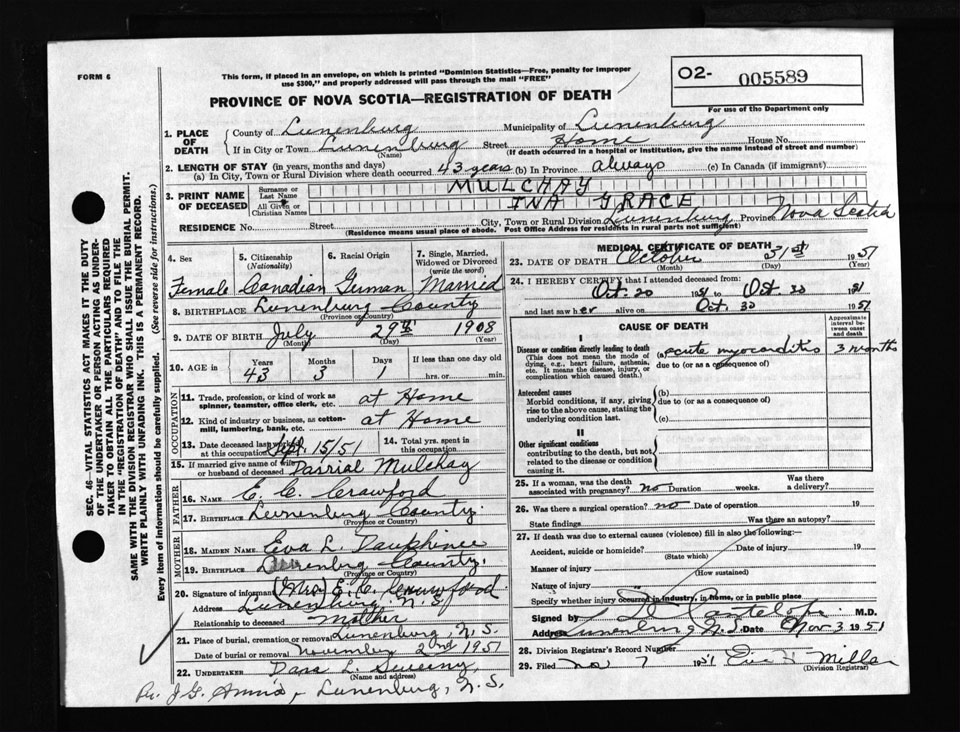 FORM 6
This form, if placed in an envelope, on which is printed "Dominion Statistics—Free, penalty for improper
use $300," and properly addressed will pass through the mail "FREE"
O2- 005589
For use of the Department only
PROVINCE OF NOVA SCOTIA—REGISTRATION OF DEATH
1. PLACE OF DEATH County of Lunenburg Municipality of Lunenburg
If in City or Town Lunenburg Street Home House No.
(Name) (If death occurred in a hospital or institution, give the name instead of street and number)
2. LENGTH OF STAY (in years, months and days)
(a) In City, Town or Rural Division where death occurred 43 years (b) In Province always (c) In Canada (if immigrant)
3. PRINT NAME OF DECEASED Surname or Last Name MULCHAY
All Given or Christian Names INA GRACE
RESIDENCE No. Street City, Town or Rural Division Lunenburg Province Nova Scotia
(Residence means usual place of abode. Post Office Address for residents in rural parts not sufficient)
4. Sex 5. Citizenship (Nationality) 6. Racial Origin 7. Single, Married, Widowed or Divorced (write the word)
Female Canadian German Married
8. BIRTHPLACE Lunenburg County
(Province or Country)
9. DATE OF BIRTH July 29th 1908
(Month) (Day) (Year)
10. AGE in Years Months Days If less than one day old
43 3 1 hrs. or min.
OCCUPATION
11. Trade, profession, or kind of work as spinner, teamster, office clerk, etc. at Home
12. Kind of industry or business, as cotton-mill, lumbering, bank, etc. at Home
13. Date deceased last worked at this occupation Sept 15/51 14. Total yrs. spent in this occupation
15. If married give name of wife or husband of deceased Darrial Mulchay
FATHER
16. NAME E. C. Crawford
17. BIRTHPLACE Lunenburg County.
(Province or Country)
MOTHER
18. MAIDEN NAME Eva L. Dauphinee
19. BIRTHPLACE Lunenburg County.
(Province or Country)
20. Signature of informant (Mrs) E. C. Crawford
Address Lunenburg, N.S.
Relationship to deceased Mother
21. Place of burial, cremation or removal Lunenburg, N.S.
Date of burial or removal November 2nd 1951
22. UNDERTAKER Dara L. Sweeny,
(Name and address)
Per J.G. - Lunenburg, N.S.
MEDICAL CERTIFICATE OF DEATH
23. DATE OF DEATH October 31st 1951
(Month) (Day) (Year)
24. I HEREBY CERTIFY that I attended deceased from:
Oct. 20 1951 to Oct. 30 1951
and last saw her alive on Oct 30 1951
CAUSE OF DEATH
Approximate interval between onset and death
I
Disease or condition directly leading to death (a) acute myocarditis 3 months
(This does not mean the mode of dying, e.g., heart failure, asthenia, etc. It means the disease, injury, or complication which caused death.)
due to (or as a consequence of)
Antecedent causes
Morbid conditions, if any, giving rise to the above cause, stating the underlying condition last.
(b)
due to (or as a consequence of)
(c)
II
Other significant conditions
contributing to the death, but not related to the disease or condition causing it.
25. If a woman, was the death associated with pregnancy? no Duration weeks. Was there a delivery?
26. Was there a surgical operation? no Date of operation 19
State findings Was there an autopsy?
27. If death was due to external causes (violence) fill in also the following:—
Accident, suicide or homicide? Date of injury 19
(State which)
Manner of injury
(How sustained)
Nature of injury
Specify whether injury occurred in industry, in home, or in public place
Signed by Cantelope M.D.
Address Lunenburg N.S. Date Nov 3 1951
28. Division Registrar's Record Number
29. Filed No 7 1951 Eva H. Miller
(Division Registrar)
SEC. 46—VITAL STATISTICS ACT MAKES IT THE DUTY
OF THE UNDERTAKER OR PERSON ACTING AS UNDER-
TAKER TO OBTAIN ALL THE PARTICULARS REQUIRED
IN THE "REGISTRATION OF DEATH" AND TO FILE THE
SAME WITH THE DIVISION REGISTRAR WHO SHALL ISSUE THE BURIAL PERMIT.
WRITE PLAINLY WITH UNFADING INK. THIS IS A PERMANENT RECORD.
Every item of information should be carefully supplied. (See reverse side for instructions.)